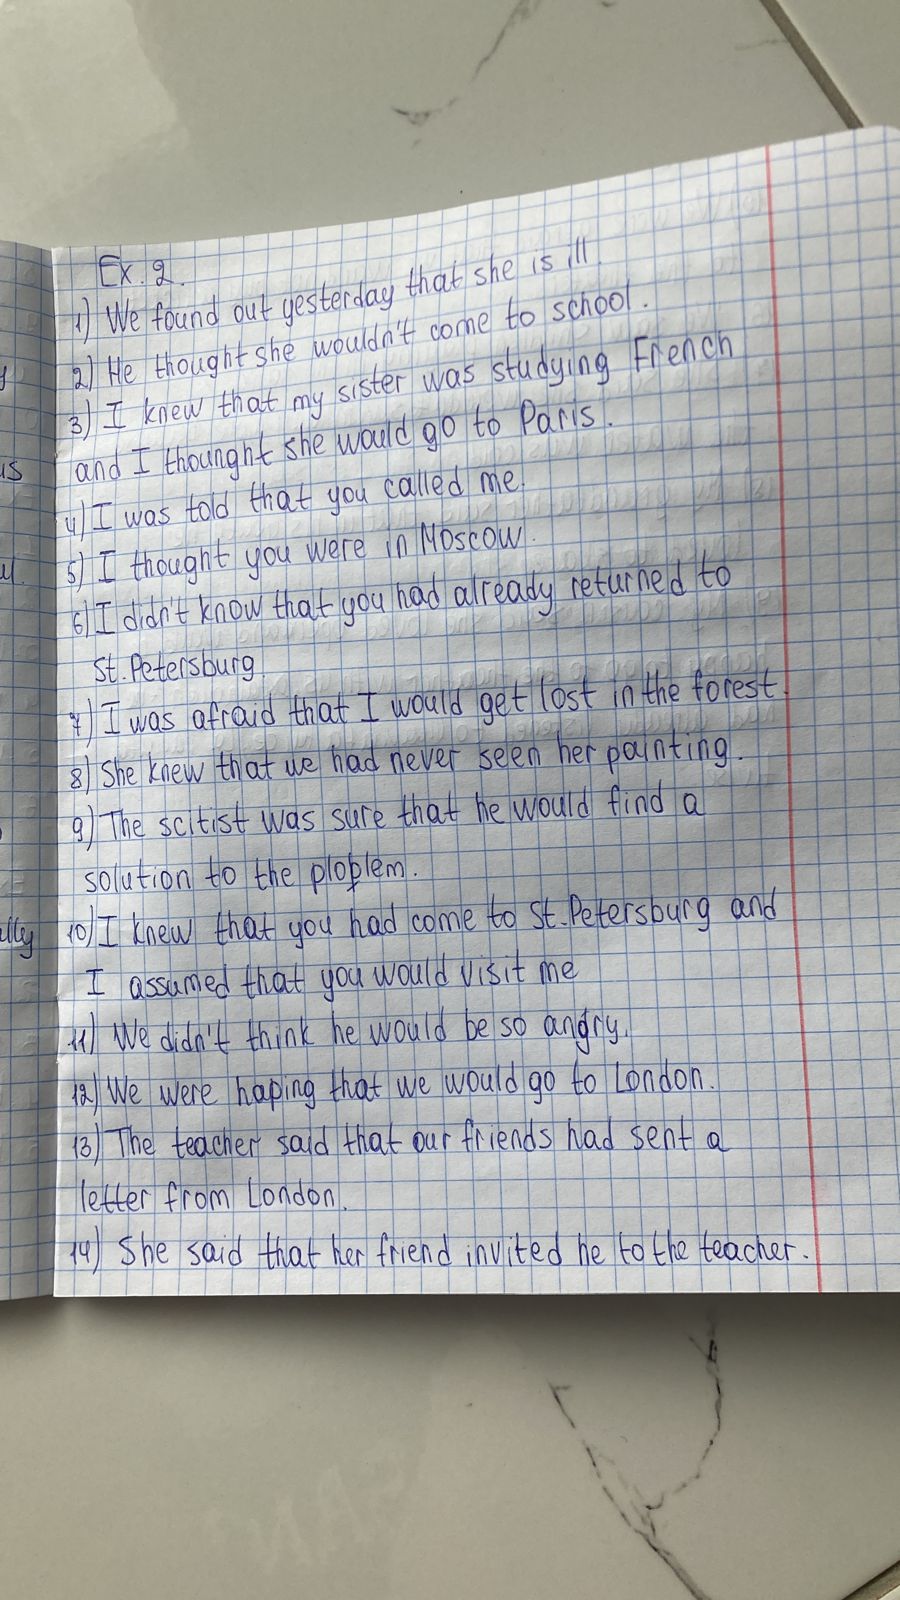 Ex. 2.
1) We found out yesterday that she is ill.
2) He thought she wouldn't come to school.
3) I knew that my sister was studying French
and I thounght she would go to Paris.
4) I was told that you called me.
5) I thought you were in Moscow.
6) I didn't know that you had already returned to
St. Petersburg.
7) I was afraid that I would get lost in the forest.
8) She knew that we had never seen her painting.
9) The scitist was sure that he would find a
solution to the ploplem.
10) I knew that you had come to St. Petersburg and
I assumed that you would visit me
11) We didn't think he would be so angry.
12) We were haping that we would go to London.
13) The teacher said that our friends had sent a
letter from London.
14) She said that her friend invited he to the teacher.